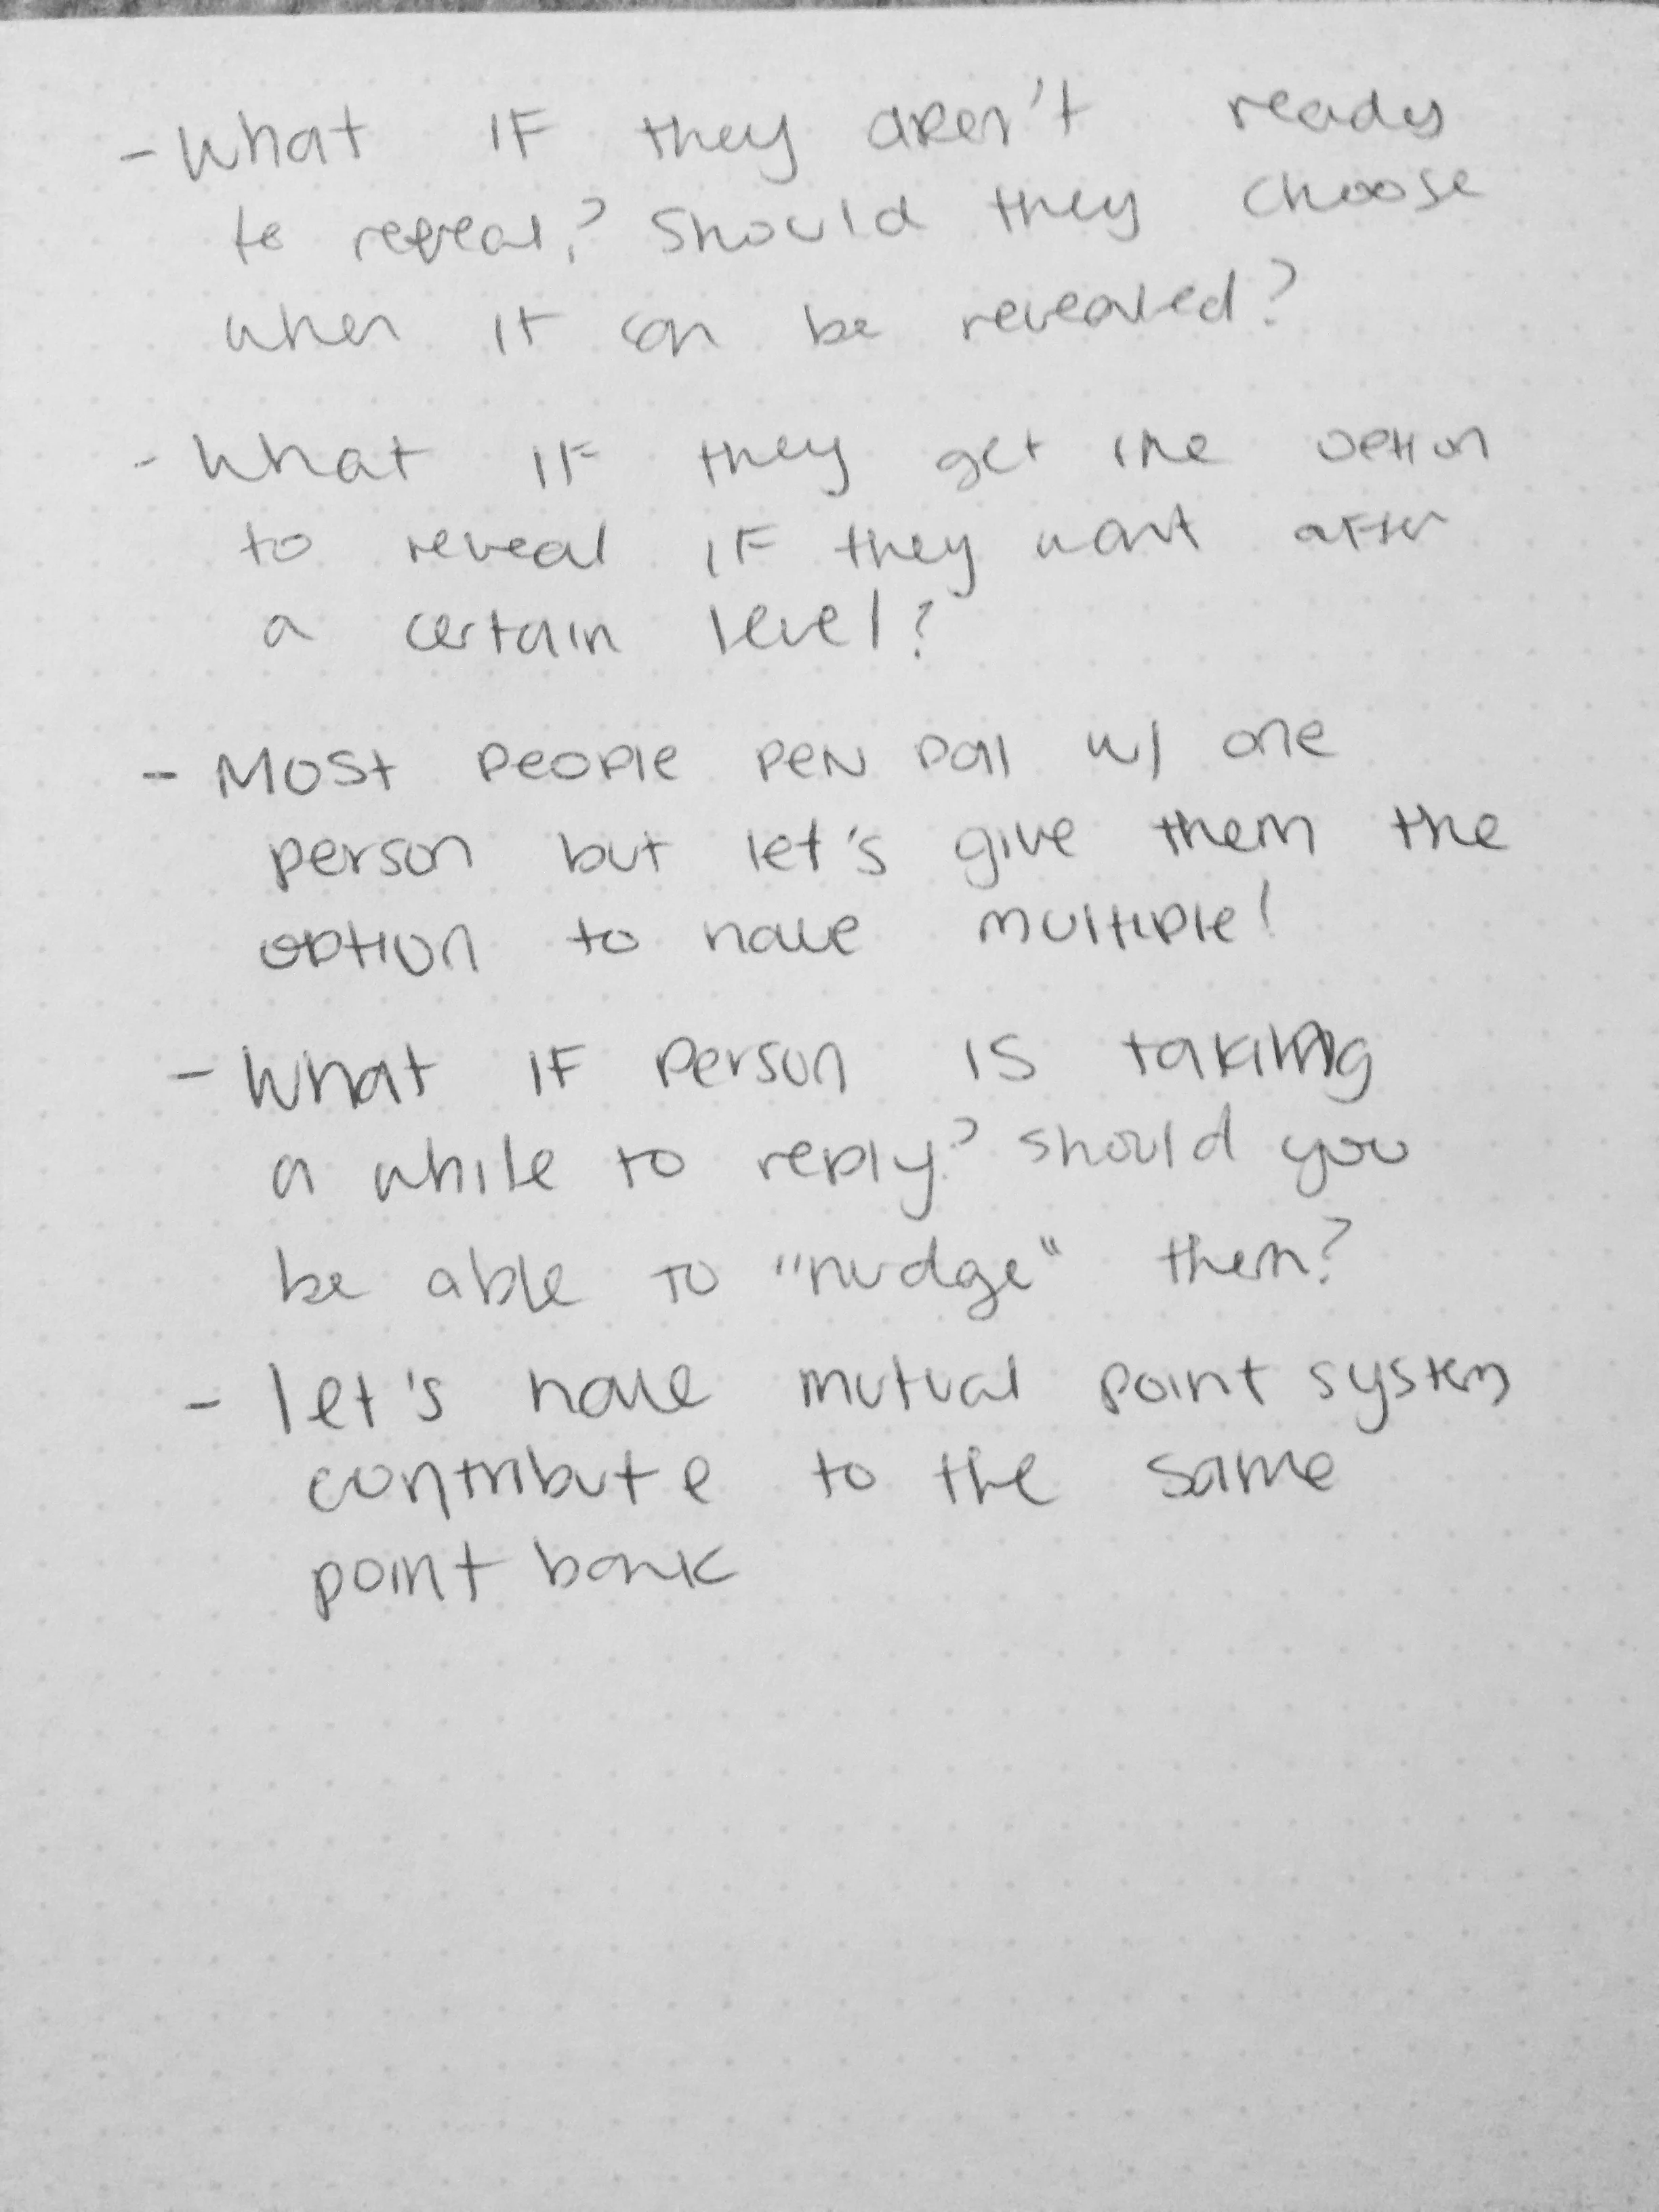 - What if they aren't ready
to reveal? Should they choose
when it can be revealed?
- What if they get the option
to reveal if they want after
a certain level?
- Most people pen pal w/ one
person but let's give them the
option to have multiple!
- What if person is taking
a while to reply? Should you
be able to "nudge" them?
- let's have mutual point system
contribute to the same
point bank